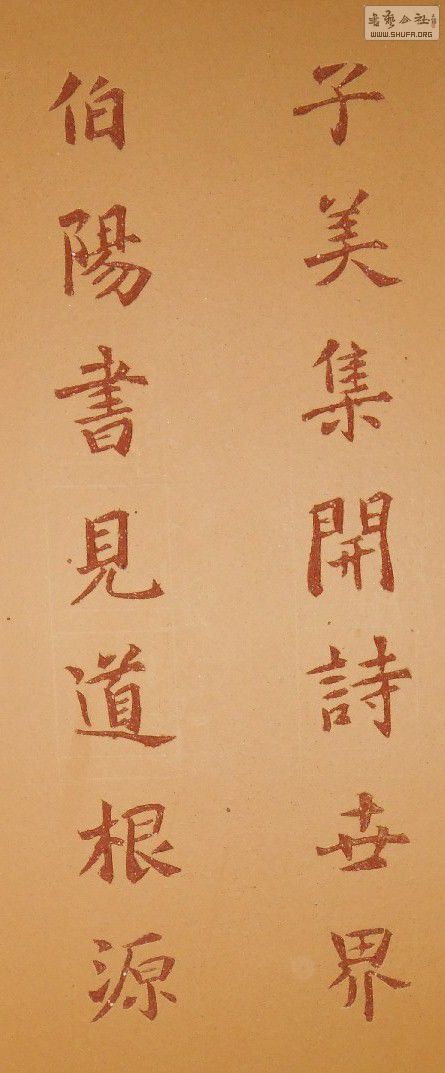 子美集開詩世界
伯陽書見道根源
書藝公社
WWW.SHUFA.ORG